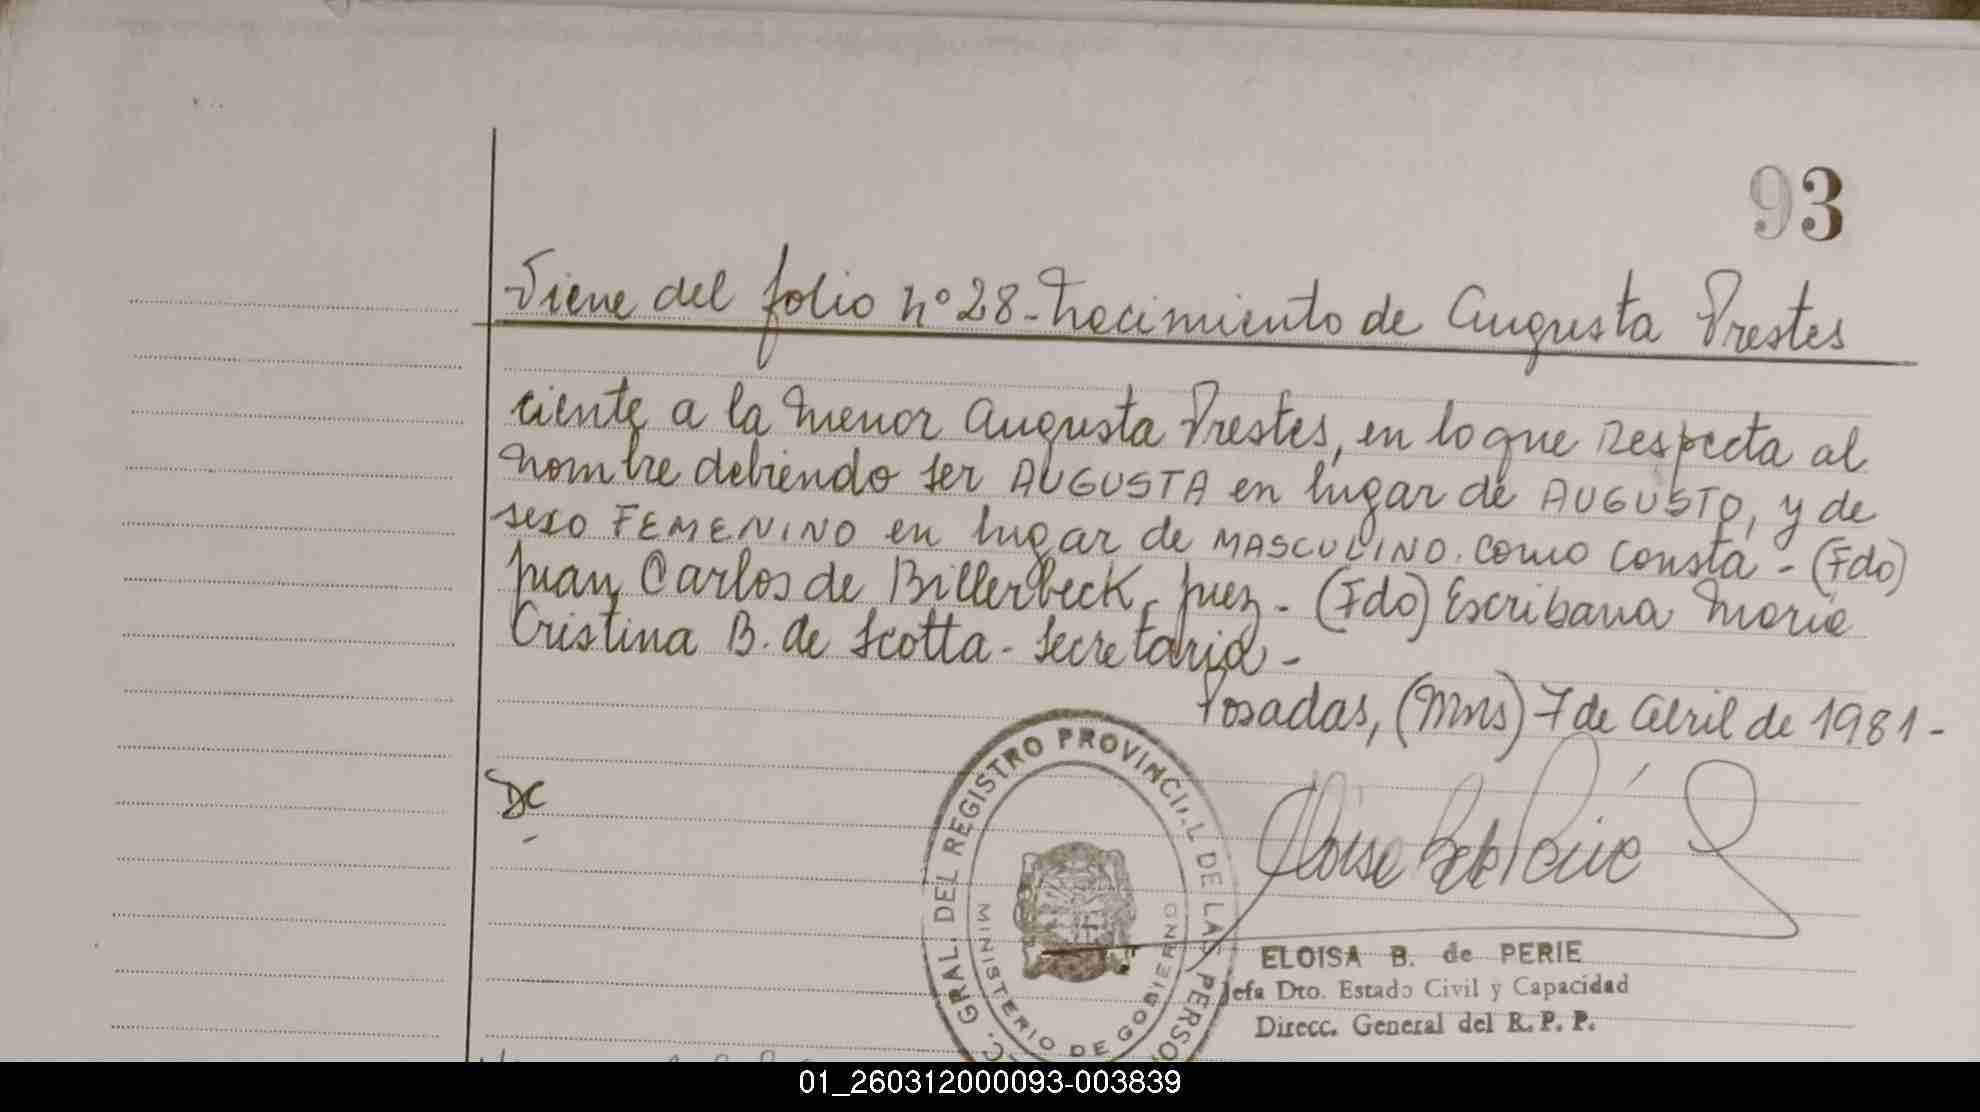 93
Viene del folio nº 28 - Nacimiento de Augusta Prestes
ciente a la menor Augusta Prestes, en lo que respecta al
nombre debiendo ser AUGUSTA en lugar de AUGUSTO, y de
sexo FEMENINO en lugar de MASCULINO. como consta - (Fdo)
Juan Carlos de Billerbeck, Juez - (Fdo) Escribana Maria
Cristina B. de Scotta - Secretaria -
Posadas, (Mns) 7 de Abril de 1981 -
DC
GRAL. DEL REGISTRO PROVINCIAL DE LAS PERSO
MINISTERIO DE GOBIERNO
ELOISA B. de PERIE
Jefa Dto. Estado Civil y Capacidad
Direcc. General del R. P. P.
01_260312000093-003839